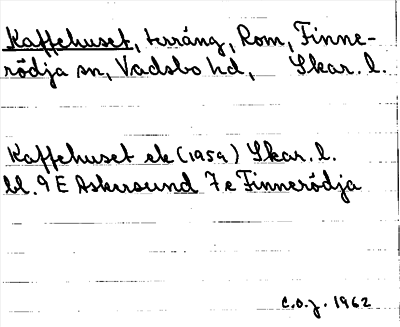 Kaffehuset, terräng, Rom, Finne-
rödja sn, Vadsbo hd, Skar. l.
Kaffehuset ek (1959) Skar. l.
bl. 9 E Askersund 7e Finnerödja
C.O.J. 1962